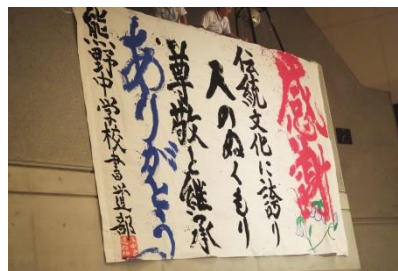 感謝
伝統文化に誇り
人のぬくもり
尊敬と継承
ありがとう
熊野中学校書道部